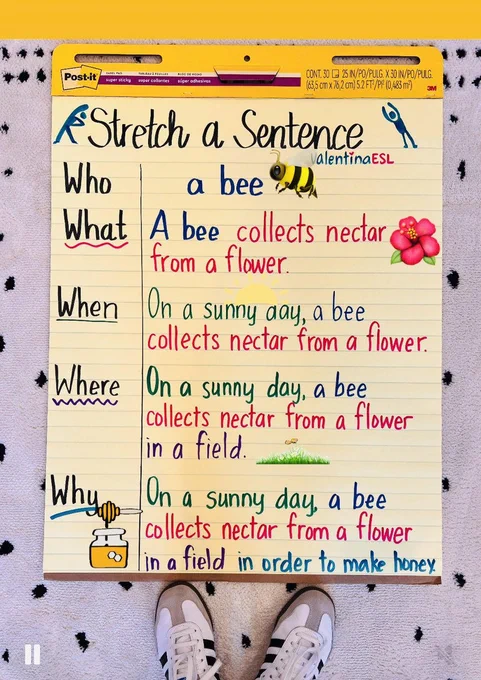 Post-it
super sticky super collantes súper adhesivos
CONT. 30 25 IN/PO/PULG. X 30 IN/PO/PULG.
(63,5 cm x 76,2 cm) 5.2 FT²/PI² (0,483 m²)
3M
Stretch a Sentence
ValentinaESL
Who a bee
What A bee collects nectar
from a flower.
When On a sunny day, a bee
collects nectar from a flower.
Where On a sunny day, a bee
collects nectar from a flower
in a field.
Why On a sunny day, a bee
collects nectar from a flower
in a field in order to make honey.